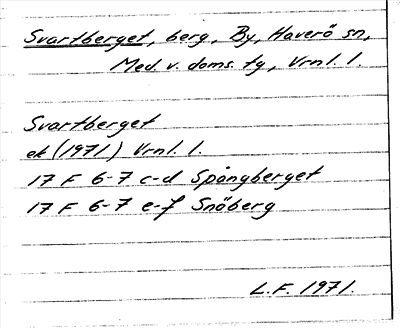 Svartberget, berg, By, Haverö sn,
Med. v. doms. tg, Vrnl. l.
Svartberget
ek (1971) Vrnl. l.
17 F 6-7 c-d Spångberget
17 F 6-7 e-f Snöberg
L.F. 1971.